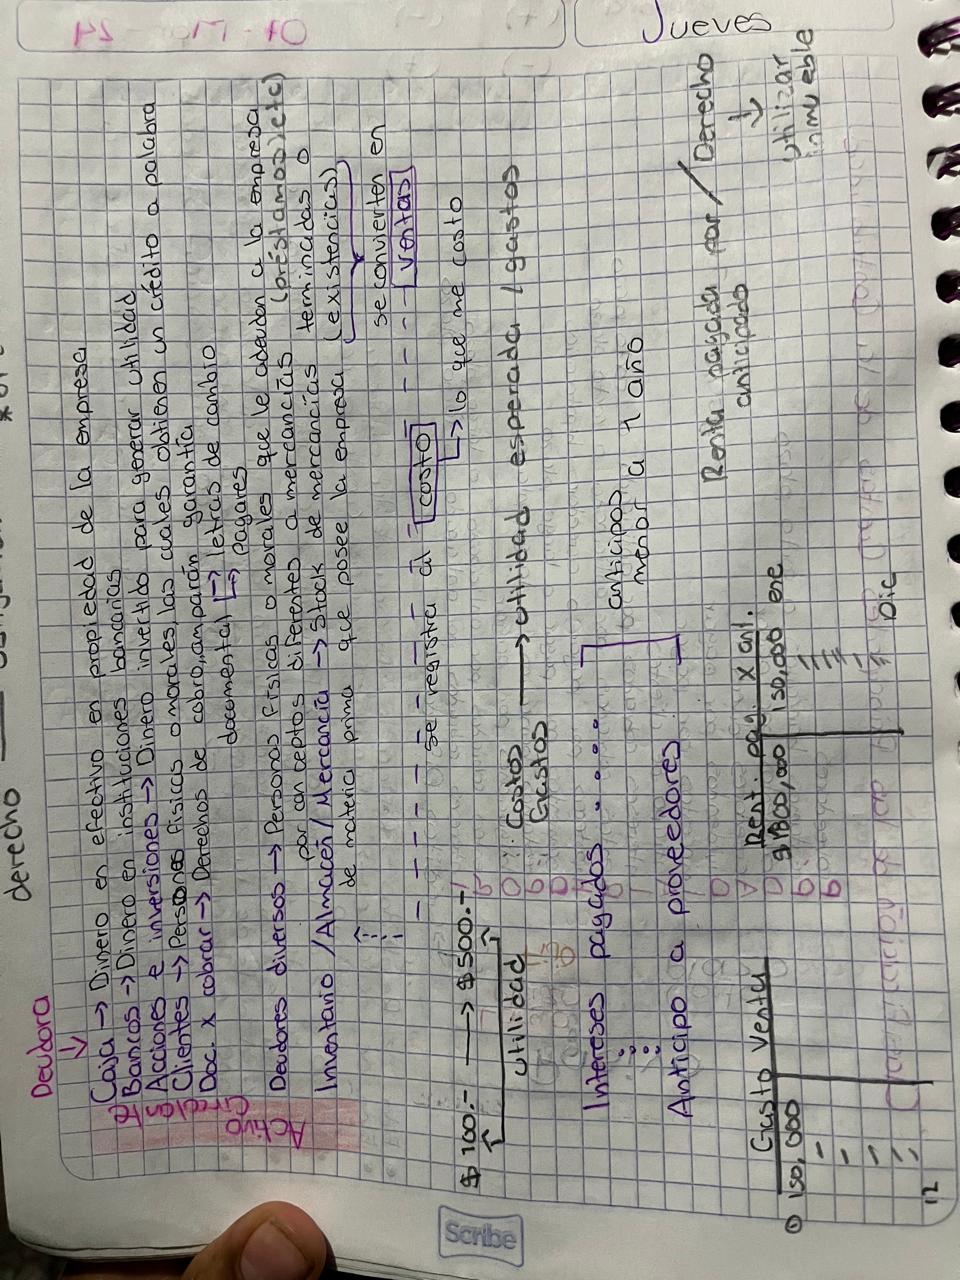 derecho
Deudora
Activo
Circulante
Caja → Dinero en efectivo en propiedad de la empresa
Bancos → Dinero en instituciones bancarias
Acciones e inversiones → Dinero invertido para generar utilidad
Clientes → Personas fisicas o morales, las cuales obtienen un crédito a palabra
Doc. x cobrar → Derechos de cobro, amparan garantía
documental → letras de cambio
→ pagares
Deudores diversos → Personas físicas o morales que le adeudan a la empresa
por conceptos diferentes a mercancías (préstamos, etc)
Inventario / Almacén / Mercancía → Stock de mercancías terminadas o
de materia prima que posee la empresa (existencias)
se convierten en
ventas
se registra al costo
→ lo que me costo
$ 100.- → $ 500.-
utilidad
Costos → utilidad esperada / gastos
Gastos
Intereses pagados . . . .
anticipos
menor a 1 año
Anticipo a proveedores
Renta pagada por / Derecho
anticipado
utilizar
inmueble
Gasto Venta
Rent. pag. x ant.
① 150,000
$ 1800,000 150,000 ene
Dic
12
Scribe
Jueves